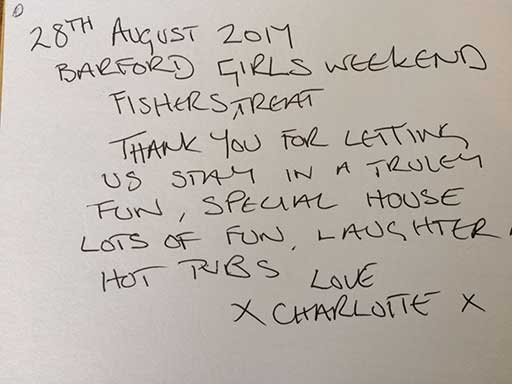 28TH AUGUST 2017
BARFORD GIRLS WEEKEND
FISHERSTREAT
THANK YOU FOR LETTING
US STAY IN A TRULEY
FUN, SPECIAL HOUSE
LOTS OF FUN, LAUGHTER,
HOT TUBS LOVE
X CHARLOTTE X